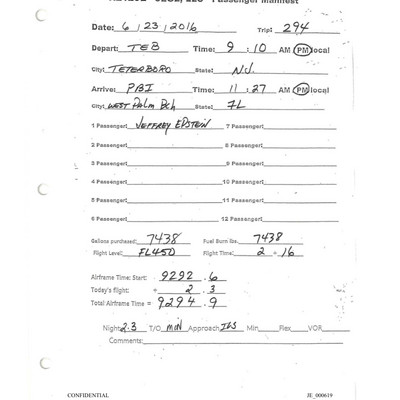 LLC - Passenger Manifest
Date: 6 / 23 / 2016 Trip: 294
Depart: TEB Time: 9 : 10 AM PM local
City: TETERBORO State: N.J.
Arrive: PBI Time: 11 : 27 AM PM local
City: WEST PALM BCH State: FL
1 Passenger: JEFFREY EPSTEIN 7 Passenger:
2 Passenger: 8 Passenger:
3 Passenger: 9 Passenger:
4 Passenger: 10 Passenger:
5 Passenger: 11 Passenger:
6 Passenger: 12 Passenger:
Gallons purchased: 7438 Fuel Burn lbs. 7438
Flight Level: FL450 Flight Time: 2 + 16
Airframe Time: Start: 9292 . 6
Today's flight: + 2 . 3
Total Airframe Time = 9294 . 9
Night 2.3 T/O MIN Approach ILS Min Flex VOR
Comments:
CONFIDENTIAL JE_000619